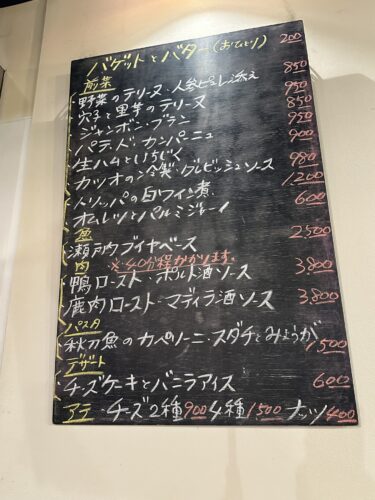 バゲットとバター(おひとり) 200
前菜
野菜のテリーヌ・人参ピュレ添え 850
穴子と里芋のテリーヌ 950
ジャンボン・ブラン 850
パテ・ド・カンパーニュ 950
生ハムといちじく 900
カツオの冷製・グレビッシュソース 980
トリッパの白ワイン煮 1,200
オムレツとパルミジャーノ 600
魚
瀬戸内ブイヤベース 2,500
肉 ※40分程かかります。
鴨ロースト・ポルト酒ソース 3,800
鹿肉ロースト・マディラ酒ソース 3,800
パスタ
秋刀魚のカペリーニ・スダチとみょうが 1,500
デザート
チーズケーキとバニラアイス 600
アテ・チーズ2種900 4種1,500 ナッツ400